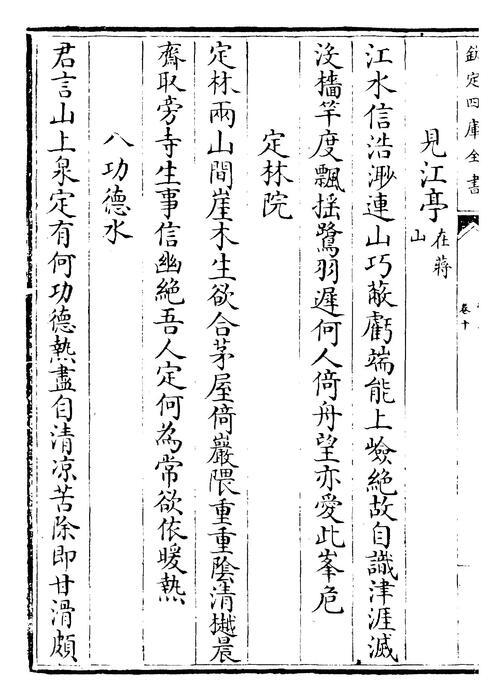 欽定四庫全書
卷十
見江亭在蔣山
江水信浩渺連山巧蔽虧端能上嶮絶故自識津涯滅
没檣竿度飄揺鷺羽遲何人倚舟望亦愛此峯危
定林院
定林兩山間崖木生欲合茅屋倚巖隈重重陰清樾晨
齋取旁寺生事信幽絶吾人定何為常欲依暖熱
八功德水
君言山上泉定有何功德熱盡自清凉苦除即甘滑頗